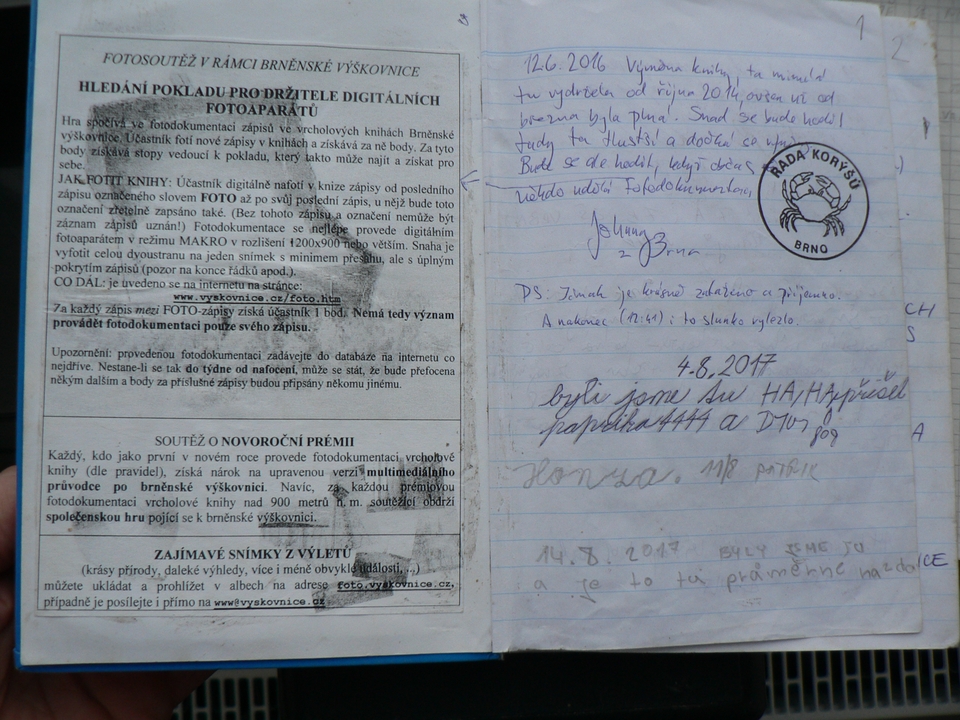 FOTOSOUTĚŽ V RÁMCI BRNĚNSKÉ VÝŠKOVNICE
HLEDÁNÍ POKLADU PRO DRŽITELE DIGITÁLNÍCH
FOTOAPARÁTŮ
Hra spočívá ve fotodokumentaci zápisů ve vrcholových knihách Brněnské
výškovnice. Účastník fotí nové zápisy v knihách a získává za ně body. Za tyto
body získává stopy vedoucí k pokladu, který takto může najít a získat pro
sebe.
JAK FOTIT KNIHY: Účastník digitálně nafotí v knize zápisy od posledního
zápisu označeného slovem FOTO až po svůj poslední zápis, u nějž bude toto
označení zřetelně zapsáno také. (Bez tohoto zápisu a označení nemůže být
záznam zápisů uznán!) Fotodokumentace se nejlépe provede digitálním
fotoaparátem v režimu MAKRO v rozlišení 1200x900 nebo větším. Snaha je
vyfotit celou dvoustranu na jeden snímek s minimem přesahu, ale s úplným
pokrytím zápisů (pozor na konce řádků apod.).
CO DÁL: je uvedeno se na internetu na stránce:
www.vyskovnice.cz/foto.htm
Za každý zápis mezi FOTO-zápisy získá účastník 1 bod. Nemá tedy význam
provádět fotodokumentaci pouze svého zápisu.
Upozornění: provedenou fotodokumentaci zadávejte do databáze na internetu co
nejdříve. Nestane-li se tak do týdne od nafocení, může se stát, že bude přefocena
někým dalším a body za příslušné zápisy budou připsány někomu jinému.
SOUTĚŽ O NOVOROČNÍ PRÉMII
Každý, kdo jako první v novém roce provede fotodokumentaci vrcholové
knihy (dle pravidel), získá nárok na upravenou verzi multimediálního
průvodce po brněnské výškovnici. Navíc, za každou prémiovou
fotodokumentaci vrcholové knihy nad 900 metrů n. m. soutěžící obdrží
společenskou hru pojící se k brněnské výškovnici.
ZAJÍMAVÉ SNÍMKY Z VÝLETŮ
(krásy přírody, daleké výhledy, více i méně obvyklé události, ...)
můžete ukládat a prohlížet v albech na adrese foto.vyskovnice.cz,
případně je posílejte i přímo na www@vyskovnice.cz
1
12.6.2016 Výměna knihy, ta minulá
tu vydržela od října 2014, ovšem už od
března byla plná. Snad se bude hodit
tady ta tlustší a dočká se
Bude se ale hodit, když občas
někdo udělá fotodokumentaci
Johnny
z Brna
RADA KORÝŠŮ
BRNO
PS: Jinak je krásně zataženo a příjemno.
A nakonec (12:41) i to slunko vylezlo.
4.8.2017
byli jsme tu HA, HA, přišel
paprika 4444 a
Honza. 11/8 PATRIK
14.8.2017 BYLY JSME TU
a je to tu průměrné
2
CH
S
A
CE